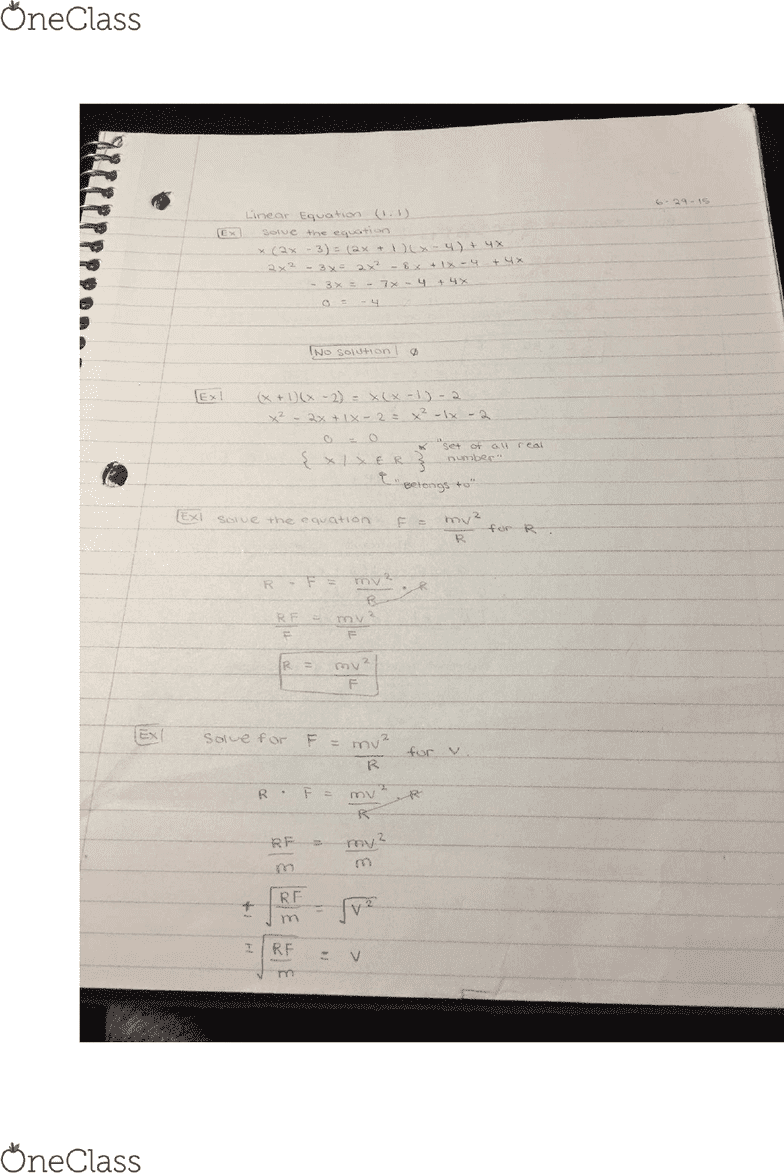 OneClass
6-29-15
Linear Equation (1.1)
Ex solve the equation
x(2x - 3) = (2x + 1)(x - 4) + 4x
2x² - 3x = 2x² - 8x + 1x - 4 + 4x
- 3x = - 7x - 4 + 4x
0 = -4
No solution ∅
Ex (x + 1)(x - 2) = x(x - 1) - 2
x² - 2x + 1x - 2 = x² - 1x - 2
0 = 0
{ x / x ∈ R } "set of all real number"
"Belongs to"
Ex Solve the equation F = mv²/R for R.
R · F = mv²/R · R
RF/F = mv²/F
R = mv²/F
Ex Solve for F = mv²/R for v.
R · F = mv²/R · R
RF/m = mv²/m
± √(RF/m) = √v²
± √(RF/m) = v
OneClass